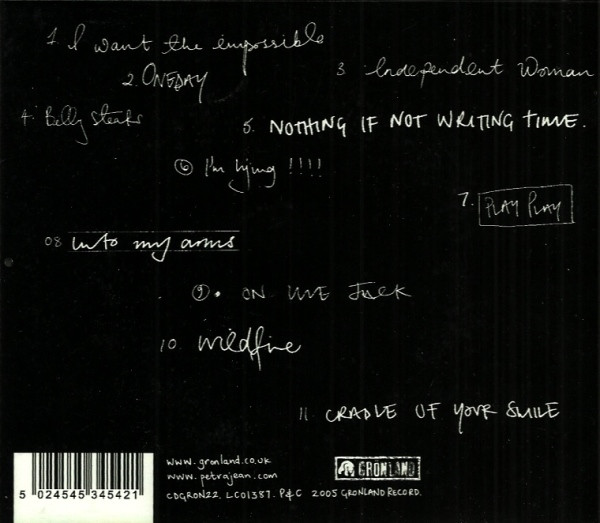 1 I want the impossible
2. ONEDAY
3 Independent Woman
4. Belly Steaks
5. NOTHING IF NOT WRITING TIME.
6 I'm lying !!!!
7. PLAY PLAY
08 into my arms
9. ON ME Jack
10. wildfire
11. CRADLE OF YOUR SMILE
www.gronland.co.uk
www.petrajean.com
CDGRON22. LC01387. P&C 2005 GRONLAND RECORD.
GRONLAND
5 024545 345421